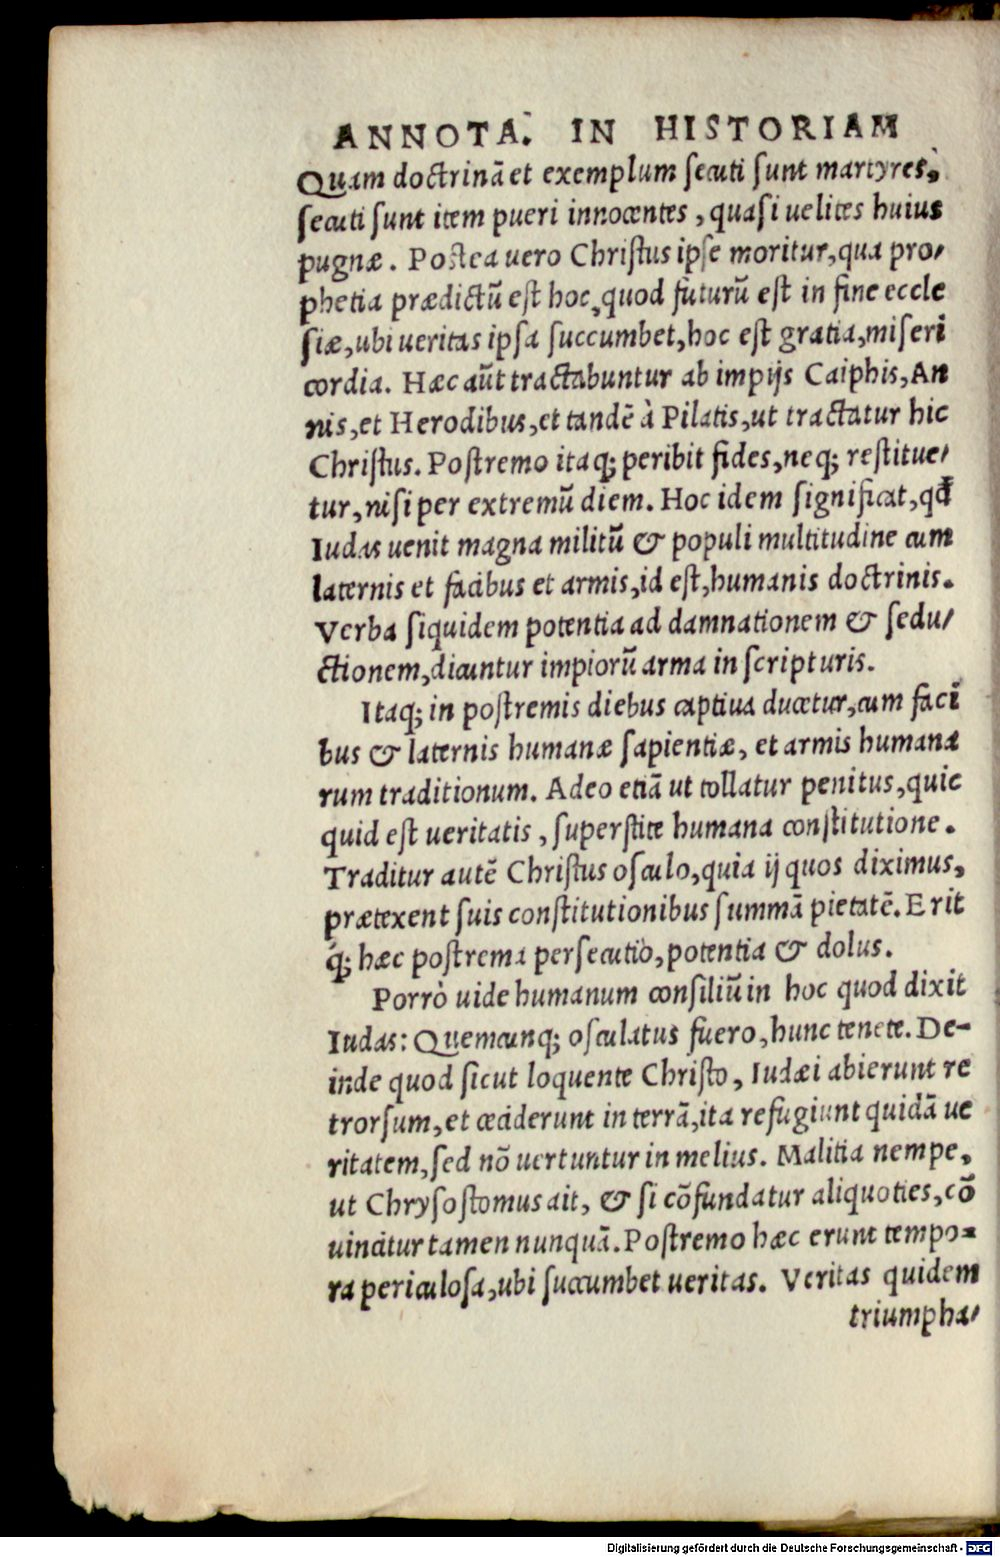 ANNOTA. IN HISTORIAM
Quam doctrinā et exemplum secuti sunt martyres,
secuti sunt item pueri innocentes, quasi uelites huius
pugnæ. Postea uero Christus ipse moritur, qua pro/
phetia prædictū est hoc, quod futurū est in fine eccle
siæ, ubi ueritas ipsa succumbet, hoc est gratia, miseri
cordia. Hæc aūt tractabuntur ab impijs Caiphis, An
nis, et Herodibus, et tandē à Pilatis, ut tractatur hic
Christus. Postremo itaq; peribit fides, neq; restitue/
tur, nisi per extremū diem. Hoc idem significat, qđ
Iudas uenit magna militū & populi multitudine cum
laternis et facibus et armis, id est, humanis doctrinis.
Verba siquidem potentia ad damnationem & sedu/
ctionem, dicuntur impiorū arma in scripturis.
Itaq; in postremis diebus captiua ducetur, cum faci
bus & laternis humanæ sapientiæ, et armis humana
rum traditionum. Adeo etiā ut tollatur penitus, quic
quid est ueritatis, superstite humana constitutione.
Traditur autē Christus osculo, quia ij quos diximus,
prætexent suis constitutionibus summā pietatē. Erit
q́; hæc postrema persecutio, potentia & dolus.
Porrò uide humanum consiliū in hoc quod dixit
Iudas: Quemcunq; osculatus fuero, hunc tenete. De-
inde quod sicut loquente Christo, Iudæi abierunt re
trorsum, et ceciderunt in terrā, ita refugiunt quidā ue
ritatem, sed nō uertuntur in melius. Malitia nempe,
ut Chrysostomus ait, & si cōfundatur aliquoties, cō
uincitur tamen nunquā. Postremo hæc erunt tempo=
ra periculosa, ubi succumbet ueritas. Veritas quidem
triumpha/
Digitalisierung gefördert durch die Deutsche Forschungsgemeinschaft - DFG